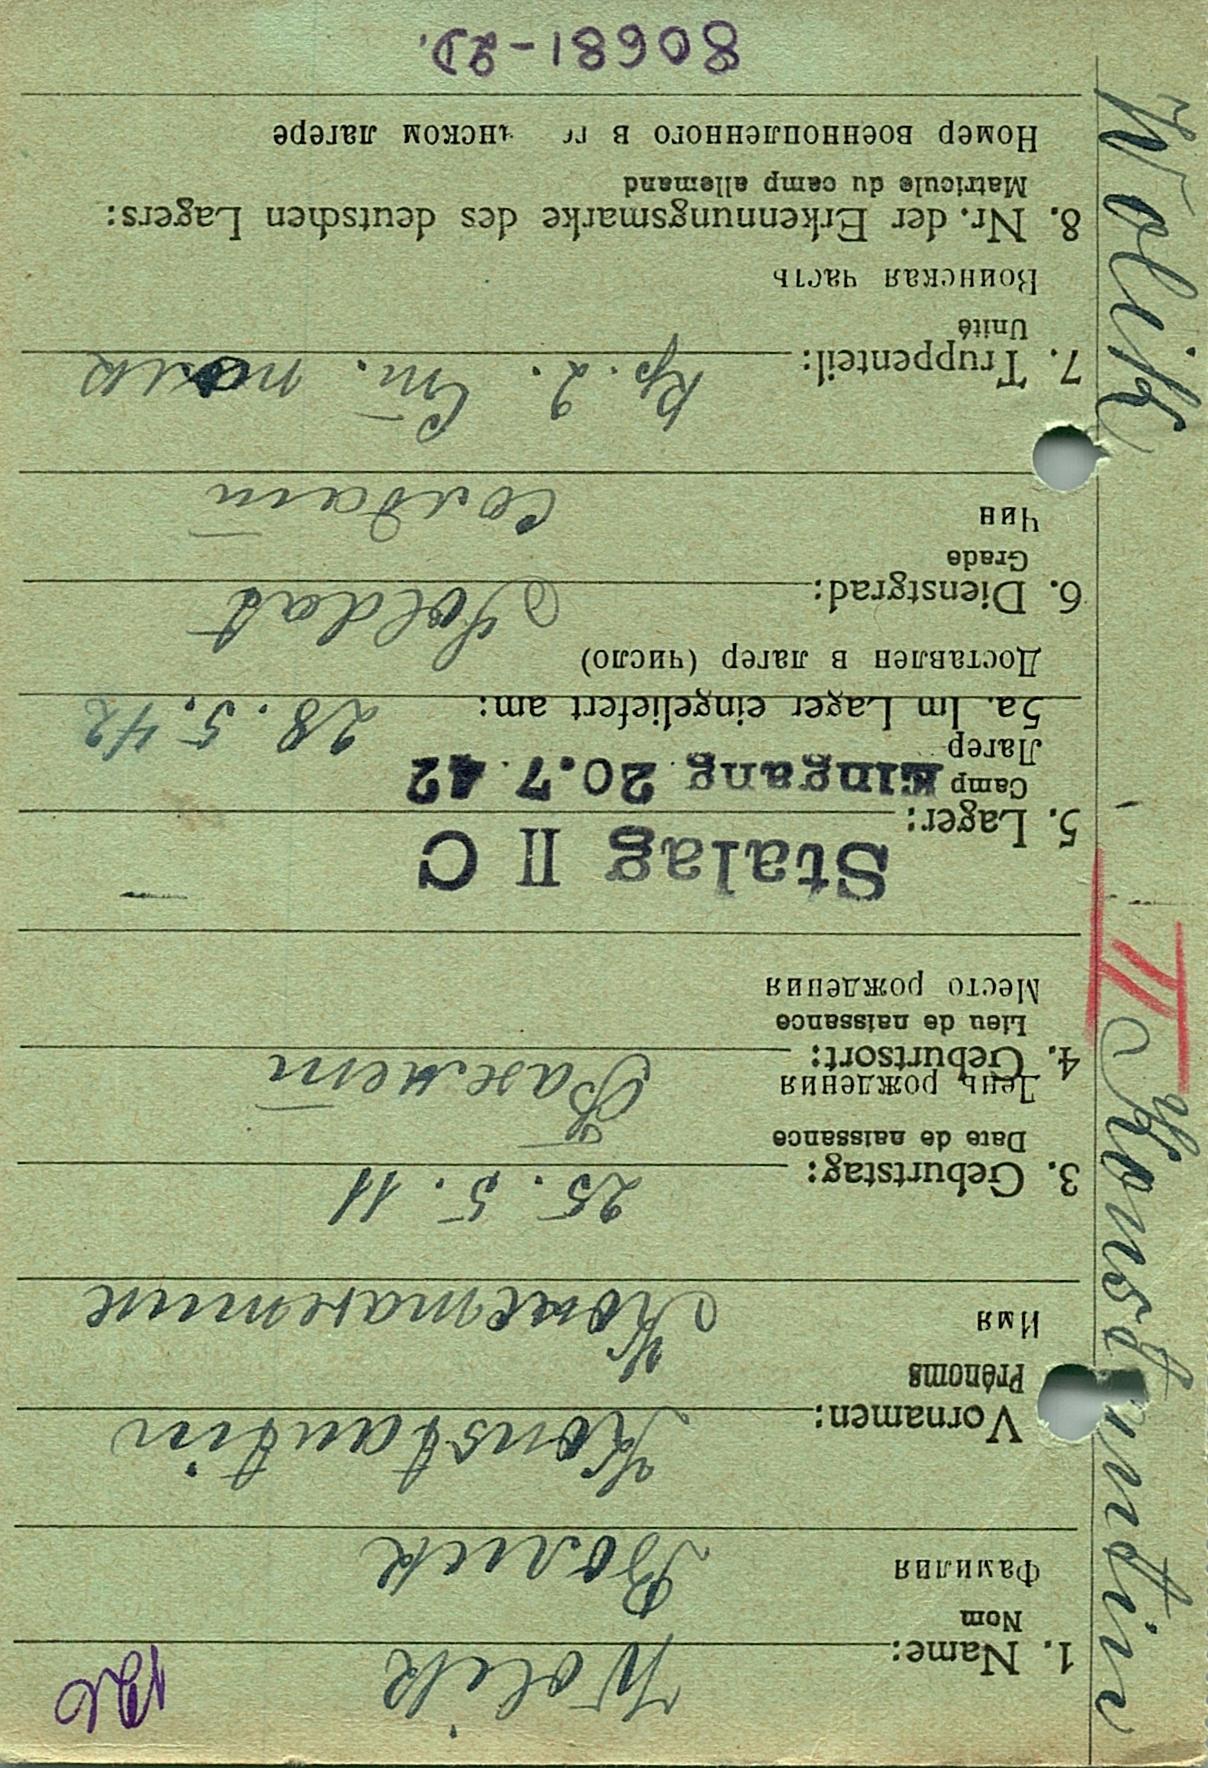 1. Name: Wolik
Nom
Фамилия Волик
Vornamen: Konstantin
Prénoms
Имя Константин
3. Geburtstag: 25. 5. 11
Date de naissance
День рождения
4. Geburtsort:
Lieu de naissance
Место рождения
Stalag II C
5. Lager:
Camp Eingang 20.7.42
Лагер
5a. Im Lager eingeliefert am: 28. 5. 42
Доставлен в лагер (число)
6. Dienstgrad: Soldat
Grade
Чин Солдат
7. Truppenteil:
Unité
Воинская часть
8. Nr. der Erkennungsmarke des deutschen Lagers:
Matricule du camp allemand
Номер военнопленного в лагере
80681-2D.
Wolik II Konstantin